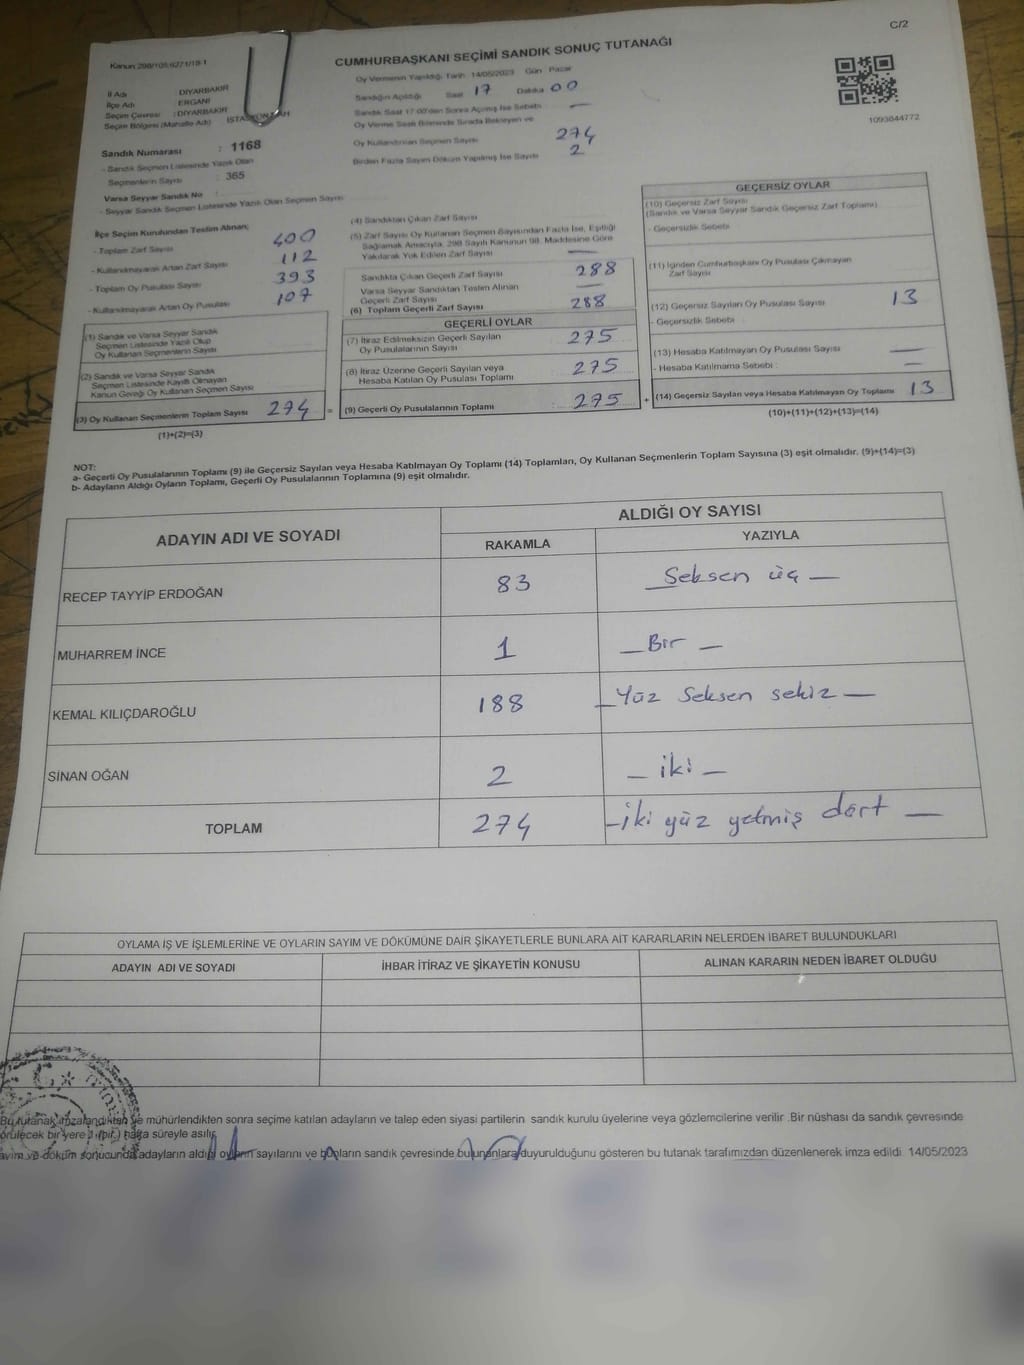 C/2
Kanun 298/105,6271/18-1
CUMHURBAŞKANI SEÇİMİ SANDIK SONUÇ TUTANAĞI
İl Adı : DİYARBAKIR
İlçe Adı : ERGANİ
Seçim Çevresi : DİYARBAKIR
Seçim Bölgesi (Mahalle Adı)
Oy Vermenin Yapıldığı Tarih 14/05/2023 Gün Pazar
Sandığın Açıldığı Saat 17 Dakika 00
Sandık Saat 17:00'den Sonra Açılmış İse Sebebi —
Oy Verme Saati Bitiminde Sırada Bekleyen ve
Oy Kullandırılan Seçmen Sayısı 274
Birden Fazla Sayım Döküm Yapılmış İse Sayısı 2
1093644772
Sandık Numarası : 1168
- Sandık Seçmen Listesinde Yazılı Olan
Seçmenlerin Sayısı : 365
Varsa Seyyar Sandık No
- Seyyar Sandık Seçmen Listesinde Yazılı Olan Seçmen Sayısı
İlçe Seçim Kurulundan Teslim Alınan;
- Toplam Zarf Sayısı 400
- Kullanılmayarak Artan Zarf Sayısı 112
- Toplam Oy Pusulası Sayısı 393
- Kullanılmayarak Artan Oy Pusulası 107
(1) Sandık ve Varsa Seyyar Sandık
Seçmen Listesinde Yazılı Olup
Oy Kullanan Seçmenlerin Sayısı
(2) Sandık ve Varsa Seyyar Sandık
Seçmen Listesinde Kayıtlı Olmayan
Kanun Gereği Oy Kullanan Seçmen Sayısı
(3) Oy Kullanan Seçmenlerin Toplam Sayısı 274 =
(1)+(2)=(3)
(4) Sandıktan Çıkan Zarf Sayısı
(5) Zarf Sayısı Oy Kullanan Seçmen Sayısından Fazla İse, Eşitliği
Sağlamak Amacıyla, 298 Sayılı Kanunun 98. Maddesine Göre
Yakılarak Yok Edilen Zarf Sayısı —
Sandıkta Çıkan Geçerli Zarf Sayısı 288
Varsa Seyyar Sandıktan Teslim Alınan
Geçerli Zarf Sayısı —
(6) Toplam Geçerli Zarf Sayısı 288
GEÇERLİ OYLAR
(7) İtiraz Edilmeksizin Geçerli Sayılan
Oy Pusulalarının Sayısı 275
(8) İtiraz Üzerine Geçerli Sayılan veya
Hesaba Katılan Oy Pusulası Toplamı 275
(9) Geçerli Oy Pusulalarının Toplamı : 275 +
GEÇERSİZ OYLAR
(10) Geçersiz Zarf Sayısı
(Sandık ve Varsa Seyyar Sandık Geçersiz Zarf Toplamı)
- Geçersizlik Sebebi
(11) İçinden Cumhurbaşkanı Oy Pusulası Çıkmayan
Zarf Sayısı
(12) Geçersiz Sayılan Oy Pusulası Sayısı 13
- Geçersizlik Sebebi
(13) Hesaba Katılmayan Oy Pusulası Sayısı —
- Hesaba Katılmama Sebebi : —
(14) Geçersiz Sayılan veya Hesaba Katılmayan Oy Toplamı 13
(10)+(11)+(12)+(13)=(14)
NOT:
a- Geçerli Oy Pusulalarının Toplamı (9) ile Geçersiz Sayılan veya Hesaba Katılmayan Oy Toplamı (14) Toplamları, Oy Kullanan Seçmenlerin Toplam Sayısına (3) eşit olmalıdır. (9)+(14)=(3)
b- Adayların Aldığı Oyların Toplamı, Geçerli Oy Pusulalarının Toplamına (9) eşit olmalıdır.
ADAYIN ADI VE SOYADI ALDIĞI OY SAYISI
RAKAMLA YAZIYLA
RECEP TAYYİP ERDOĞAN 83 — Seksen üç —
MUHARREM İNCE 1 — Bir —
KEMAL KILIÇDAROĞLU 188 — Yüz Seksen sekiz —
SİNAN OĞAN 2 — iki —
TOPLAM 274 — iki yüz yetmiş dört —
OYLAMA İŞ VE İŞLEMLERİNE VE OYLARIN SAYIM VE DÖKÜMÜNE DAİR ŞİKAYETLERLE BUNLARA AİT KARARLARIN NELERDEN İBARET BULUNDUKLARI
ADAYIN ADI VE SOYADI İHBAR İTİRAZ VE ŞİKAYETİN KONUSU ALINAN KARARIN NEDEN İBARET OLDUĞU
Bu tutanak imzalandıktan ve mühürlendikten sonra seçime katılan adayların ve talep eden siyasi partilerin sandık kurulu üyelerine veya gözlemcilerine verilir .Bir nüshası da sandık çevresinde
görülecek bir yere 1 (bir) hafta süreyle asılır
ayım ve döküm sonucunda adayların aldığı oyların sayılarını ve bunların sandık çevresinde bulunanlara duyurulduğunu gösteren bu tutanak tarafımızdan düzenlenerek imza edildi. 14/05/2023